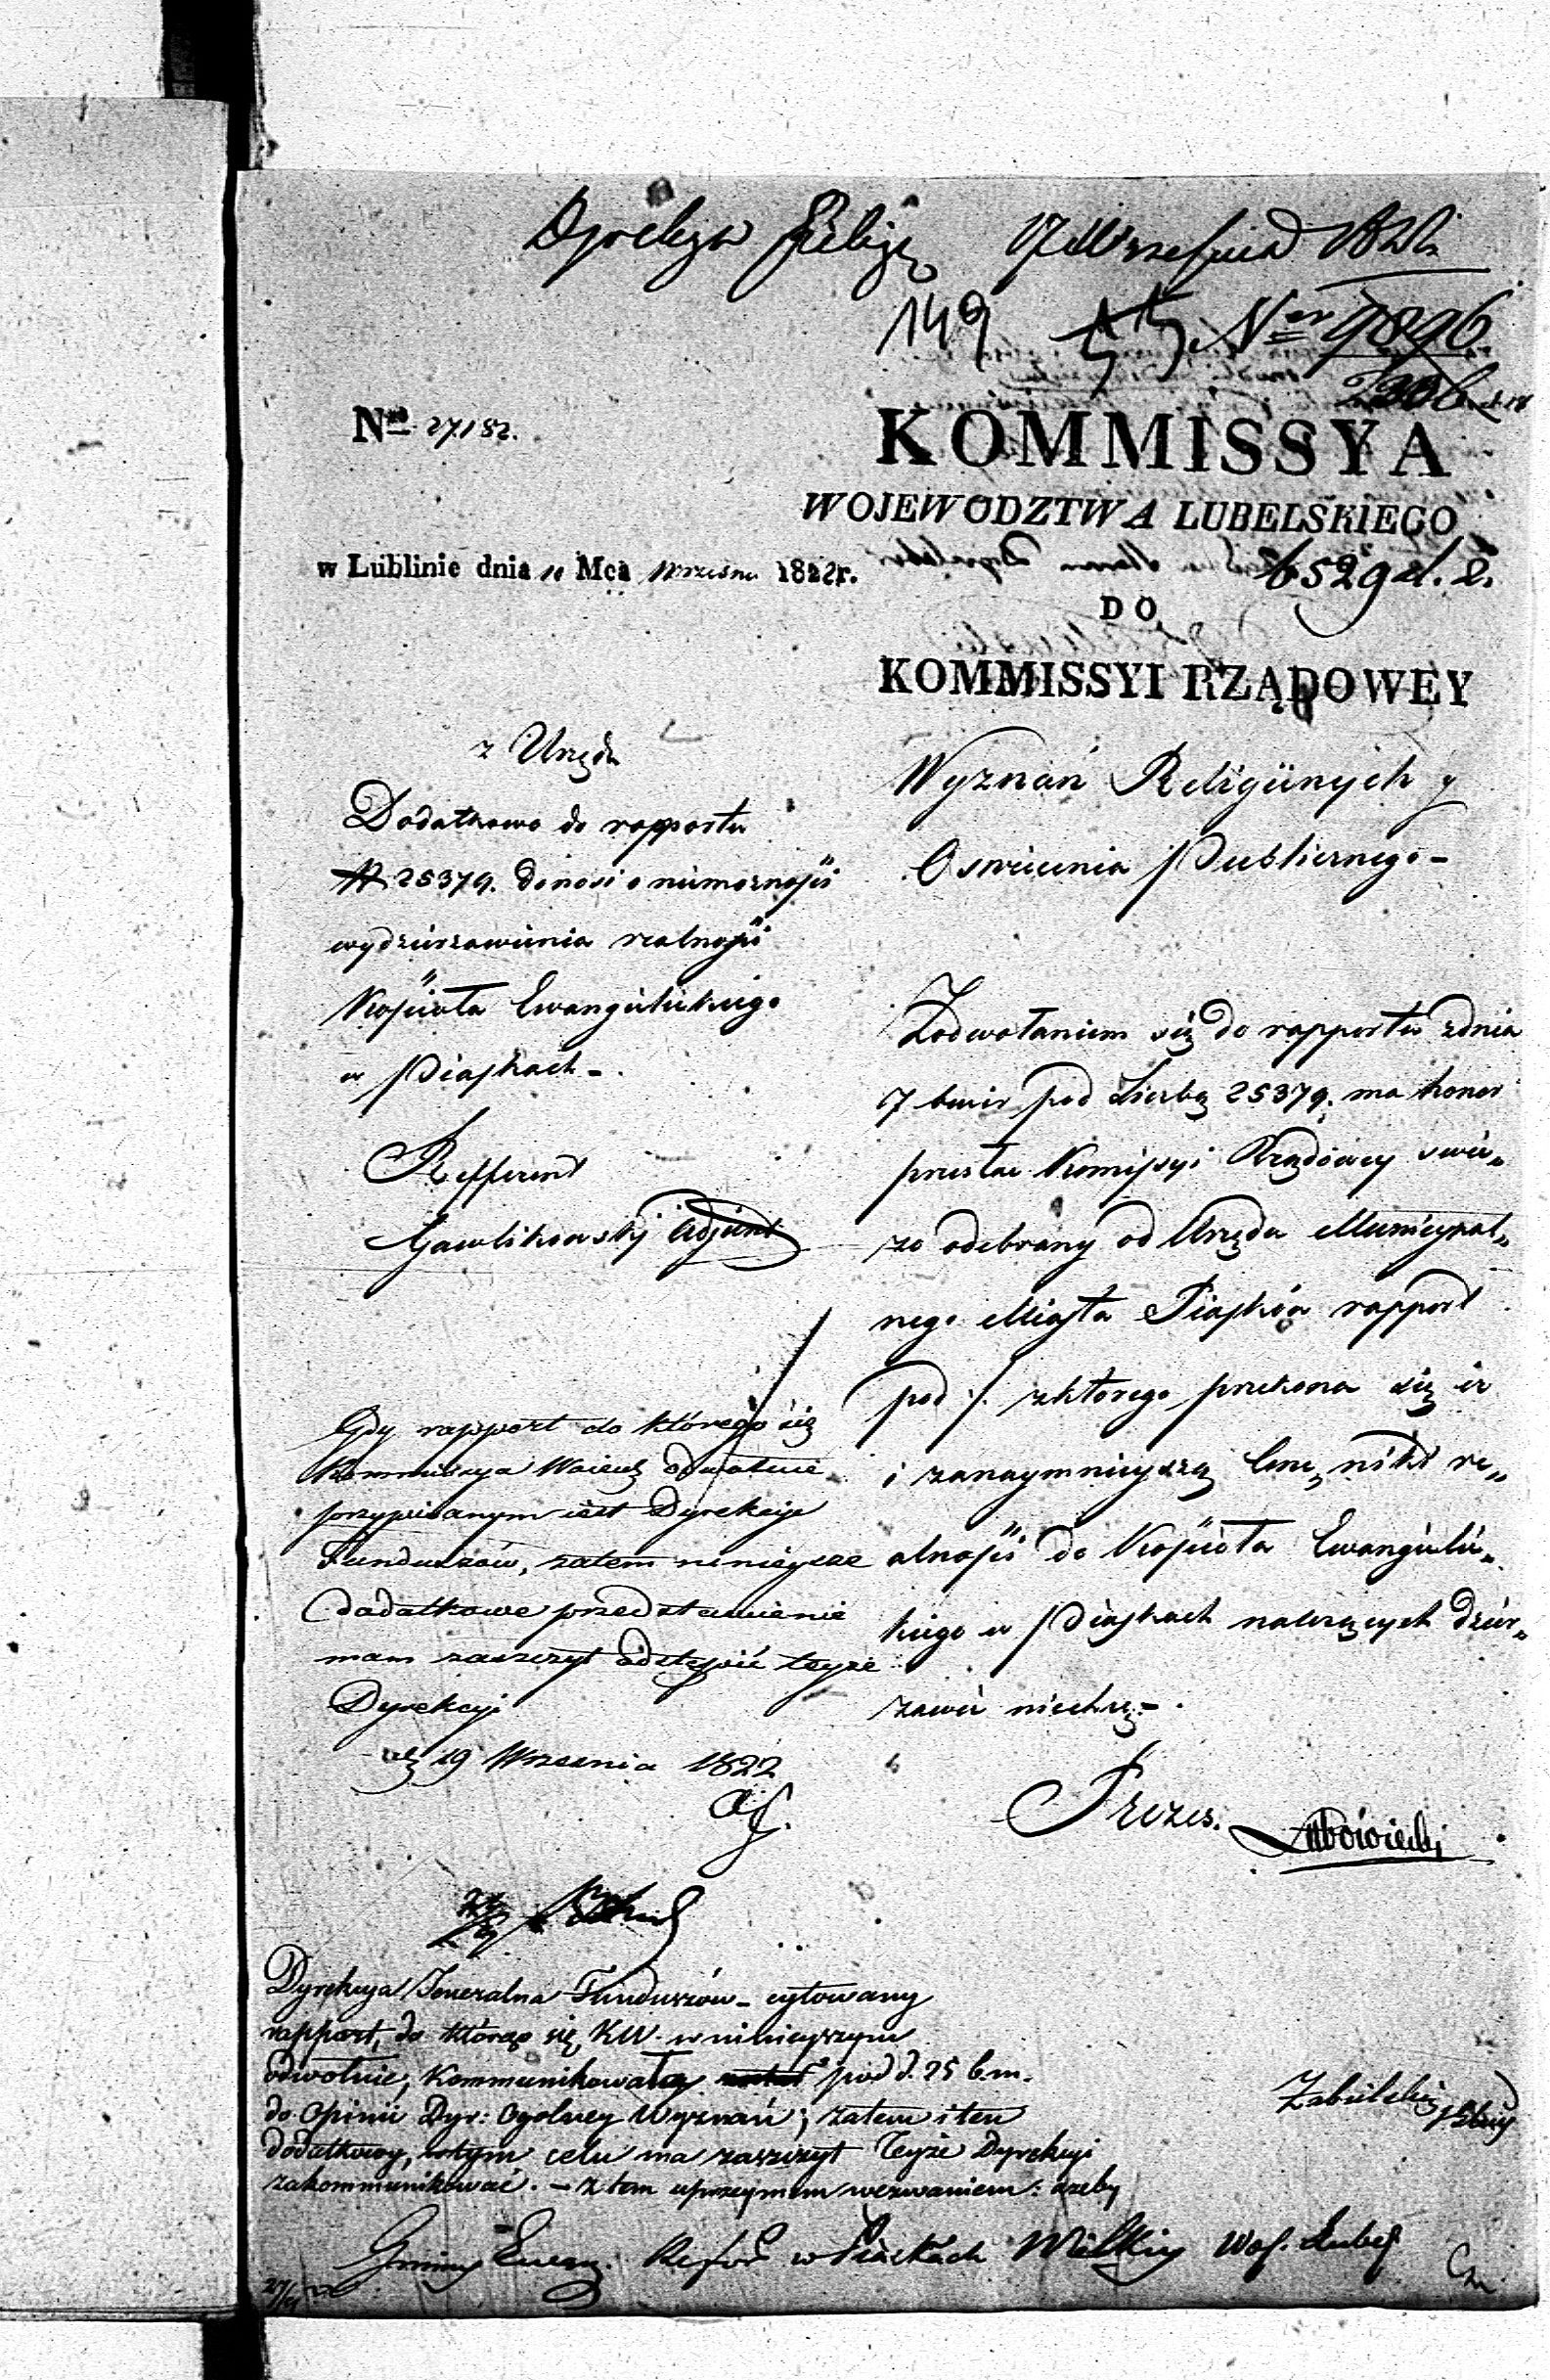 Dyrekcya Religij 17 Września 1822
149 Ner 9896
Nro 27152.
KOMMISSYA
WOJEWODZTWA LUBELSKIEGO
w Lublinie dnia 11 Mca Wrzesnia 1822r.
6529 d. 2.
DO
KOMMISSYI RZĄDOWEY
Wyznań Religiinych y
Oswiecenia Publicznego -
z Urzędu
Dodatkowo do rapportu
N 25379. donosi o niemożności
wydzierzawienia realności
Kościoła Ewangielickiego
w Piaskach -.
Refferent
Gawlikowsky Adjunkt
Z odwołaniem się do rapportu z dnia
7 bm i r pod Liczbą 25379. ma honor
przesłać Komissyi Rządowey swie„
zo odebrany od Urzędu Municypal„
nego Miasta Piasków rapport
pod ./. z którego przekona się iż
i za naymnieyszą Cenę nikt re„
alności do Kościoła Ewangieli„
kiego w Piaskach należących dzier„
zawić niechce -.
Prezes.
Gdy rapport do którego się
Kommissya Woiewz odwołuie
przypisanym iest Dyrekcyi
Funduszów, zatem ninieysze
dodatkowe przedstawienie
mam zaszczyt odstąpić teyże
Dyrekcyi
19 Września 1822
Dyrekcya Jeneralna Funduszów - cytowany
rapport, do którego się KW. w ninieyszym
odwołuie, kommunikowała pod d. 25 b.m.
do opinii Dyr: Ogolney Wyznań; zatem i ten
dodatkowy, w tym celu ma zaszczyt Teyże Dyrekcyi
zakommunikować. - z tem uprzeymem wezwaniem: ażeby
Gminy Ewan. Refor w Piaskach Wielkich Woj. Lubel.